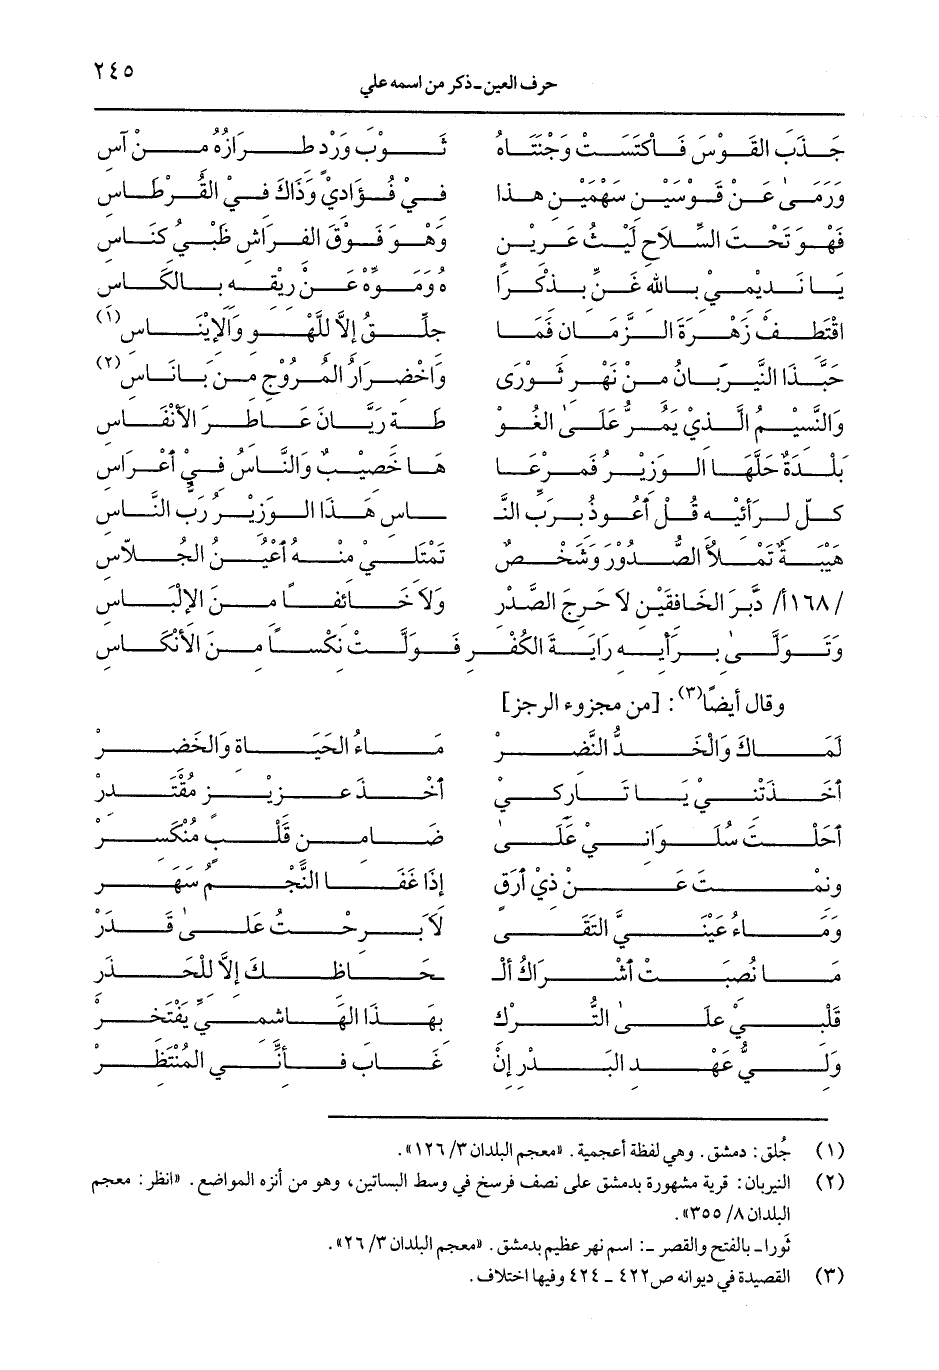 حرف العين - ذكر من اسمه علي ٢٤٥
جَذَبَ القَوْسَ فَاكْتَسَتْ وَجْنَتَاهُ ثَوْبَ وَرْدٍ طِرَازُهُ مِنْ آسِ
وَرَمَىٰ عَنْ قَوْسَيْنِ سَهْمَيْنِ هذا فِيْ فُؤَادِيْ وَذَاكَ فِيْ القُرْطَاسِ
فَهْوَ تَحْتَ السِّلاَحِ لَيْثُ عَرِيْنٍ وَهْوَ فَوْقَ الفِرَاشِ ظَبْيُ كَنَاسِ
يَا نَدِيْمِيْ بِاللهِ غَنِّ بِذْكْرَا هُ وَمَوِّهْ عَنْ رِيْقِهِ بِالكَاسِ
اقْتَطِفْ زَهْرَةَ الزَّمَانِ فَمَا جِلِّقُ إِلاَّ لِلَّهْوِ وَالإِيْنَاسِ(١)
حَبَّذَا النَّيْرَبَانُ مِنْ نَهْرِ ثَوْرَى وَاخْضِرَارُ المُرُوْجِ مِنْ بَانَاسِ(٢)
وَالنَّسِيْمُ الَّذِيْ يَمُرُّ عَلَىٰ الغُوْ طَةِ رَيَّانَ عَاطِرَ الأَنْفَاسِ
بَلْدَةٌ حَلَّهَا الوَزِيْرُ فَمَرْعَا هَا خَصِيْبٌ وَالنَّاسُ فِيْ أَعْرَاسِ
كلّ لرائيه قُلْ أَعُوذُ بِرَبِّ النَّـ ـاسِ هَذَا الوَزِيْرُ رَبُّ النَّاسِ
هَيْبَةٌ تَمْلأُ الصُّدُوْرَ وَشَخْصٌ تَمْتَلِيْ مِنْهُ أَعْيُنُ الجُلاَّسِ
/١٦٨أ/ دَبَّرَ الخَافِقَيْنِ لاَ حَرِجَ الصَّدْرِ وَلاَ خَائِفاً مِنَ الإِلْبَاسِ
وَتَوَلَّىٰ بِرَأْيِهِ رَايَةَ الكُفْرِ فَوَلَّتْ نِكْساً مِنَ الأَنْكَاسِ
وقال أيضاً(٣): [من مجزوء الرجز]
لَمَاكَ وَالْخَدُّ النَّضُرْ مَاءُ الحَيَاةِ وَالخَضِرْ
أَخَذْتَنِيْ يَا تَارِكِيْ أَخْذَ عَزِيْزٍ مُقْتَدِرْ
أَحَلْتَ سُلْوَانِيْ عَلَىٰ ضَامِنِ قَلْبٍ مُنْكَسِرْ
ونمْتَ عَنْ ذِيْ أَرَقٍ إِذَا غَفَا النَّجْمُ سَهِرْ
وَمَاءُ عَيْنَيَّ التَقَى لاَ بَرِحْتُ عَلَىٰ قَدَرْ
مَا نُصِبَتْ أَشْرَاكُ أَلْـ ـحَاظِكَ إِلاَّ لِلْحَذَرْ
قَلْبِيْ عَلَىٰ التُّرْكِ بِهَذَا الهَاشِمِيِّ يَفْتَخِرْ
وَلِيُّ عَهْدِ البَدْرِ إِنْ غَابَ فَأَنِّي المُنْتَظِرْ
(١) جُلق: دمشق. وهي لفظة أعجمية. «معجم البلدان ٣/ ١٢٦».
(٢) النيربان: قرية مشهورة بدمشق على نصف فرسخ في وسط البساتين، وهو من أنزه المواضع. «انظر: معجم
البلدان ٨/ ٣٥٥».
ثَورا - بالفتح والقصر -: اسم نهر عظيم بدمشق. «معجم البلدان ٣/ ٢٦».
(٣) القصيدة في ديوانه ص ٤٢٢ - ٤٢٤ وفيها اختلاف.